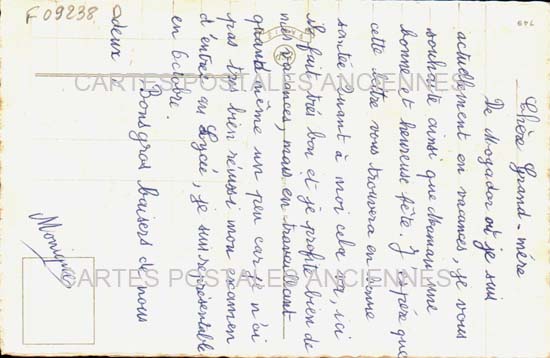 Chère Grand-mère
De Mogador où je suis
actuellement en vacances, je vous
souhaite ainsi que Maman une
bonne et heureuse fête. J'espère que
cette lettre vous trouvera en bonne
santé. Quant à moi cela va, ici
il fait très bon et je profite bien de
mes vacances, mais en travaillant
quand même un peu car je n'ai
pas très bien réussi mon examen
d'entrée au Lycée, je suis représentable
en Octobre.
Bons gros baisers de nous
deux
Monique
F 09238
749
CARTES POSTALES ANCIENNES
CARTES POSTALES ANCIENNES